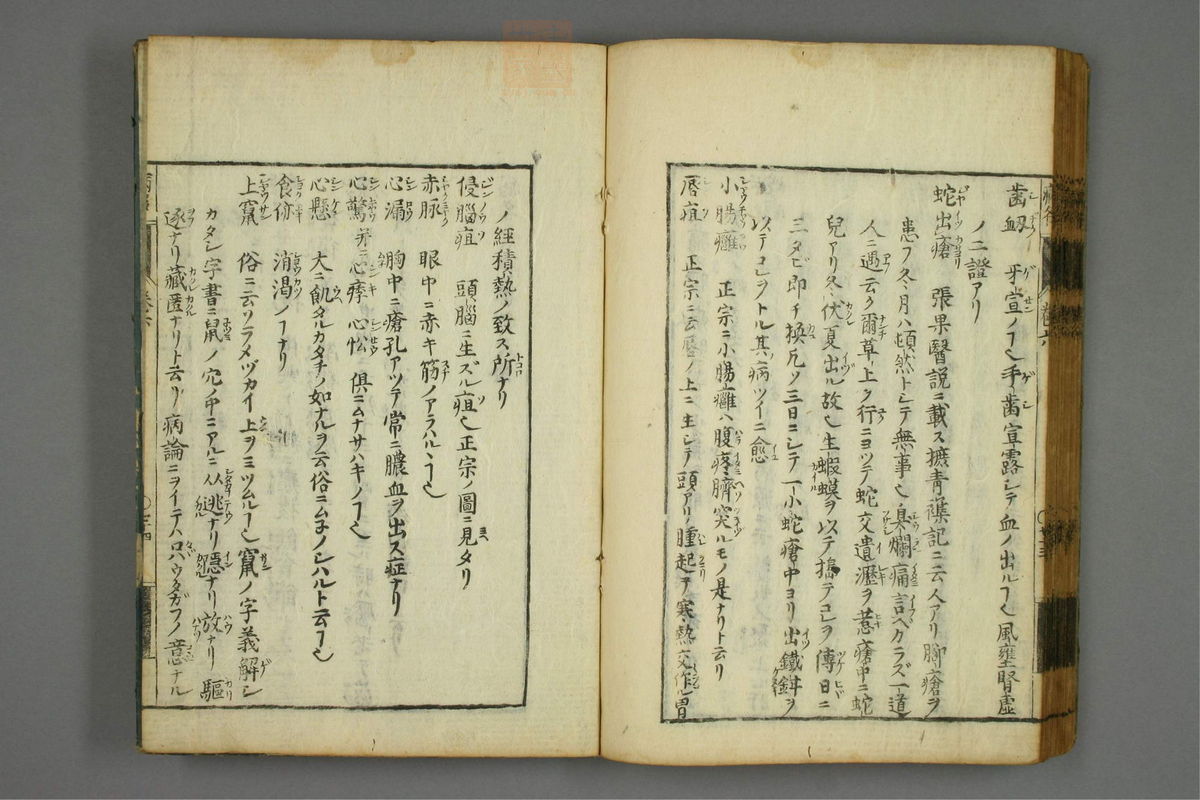 歯衂　牙宣ノヿ也手歯宣露シテ血ノ出ルヿ也風壅腎虚
ノ二證アリ
蛇出瘡　張果醫説ニ載ス摭青襍記ニ云人アリ腳瘡ヲ
患フ冬月ハ頓然トシテ無事也臭爛痛言ヘカラズ一道
人ニ遇云ク爾草上ク行ニヨツテ蛇交遺瀝ヲ惹瘡中ニ蛇
兒アリ冬伏夏出ル故也生蝦蟆ヲ以テ搗テコレヲ傅日ニ
三タビ即チ換凡ソ三日ニシテ一小蛇瘡中ヨリ出鐵鉗ヲ
以テコレヲトル其病ツイニ愈
小腸癰　正宗ニ小腸癰ハ腹疼臍突ルモノ是ナリト云リ
唇疽　正宗ニ云唇ノ上ニ生シテ頭アリ腫起テ寒熱交作也胃
ノ経積熱ノ致ス所ナリ
侵腦疽　頭腦ニ生ズル疽也正宗ノ圖ニ見タリ
赤脉　眼中ニ赤キ筋ノアラハルヽヿ也
心漏　胸中ニ瘡孔アツテ常ニ膿血ヲ出ス症ナリ
心驚并ニ心㽲心忪　俱ニムナサハキノヿ也
心懸　大ニ飢タルカタチノ如ナルヲ云俗ニムネノシハルト云ヿ也
食㑊　消渇ノヿナリ
上竄　俗ニ云ソラメヅカイ上ヲミツムルヿ也竄ノ字義解シ
カタシ字書ニ鼠ノ穴ノ中ニアルニ从逃ナリ隱ナリ放ナリ驅
逐ナリ藏匿ナリト云リ病論ニヲイテハ